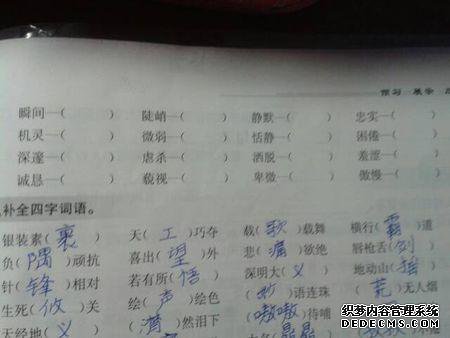 预习 展示
瞬间—( ) 陡峭—( ) 静默—( ) 忠实—( )
机灵—( ) 微弱—( ) 恬静—( ) 困倦—( )
深邃—( ) 虐杀—( ) 洒脱—( ) 羞涩—( )
诚恳—( ) 藐视—( ) 卑微—( ) 傲慢—( )
补全四字词语。
银装素(裹) 天(工)巧夺 载(歌)载舞 横行(霸)道
负(隅)顽抗 喜出(望)外 悲(痛)欲绝 唇枪舌(剑)
针(锋)相对 若有所(悟) 深明大(义) 地动山(摇)
生死(攸)关 绘(声)绘色 (妙)语连珠 (荒)无人烟
天经地(义) (潸)然泪下 (嗷嗷)待哺
梦想家内容管理系统
www.lixiangguo.com